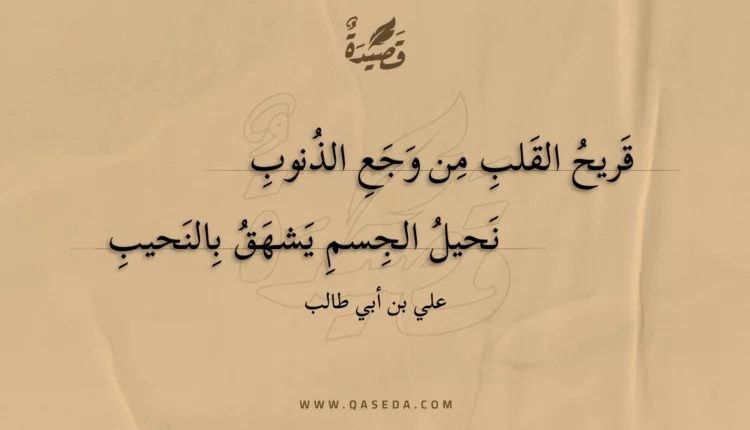 قَصِيدَةٌ
قَريحُ القَلبِ مِن وَجَعِ الذُنوبِ
نَحيلُ الجِسمِ يَشهَقُ بِالنَحيبِ
علي بن أبي طالب
WWW.QASEDA.COM